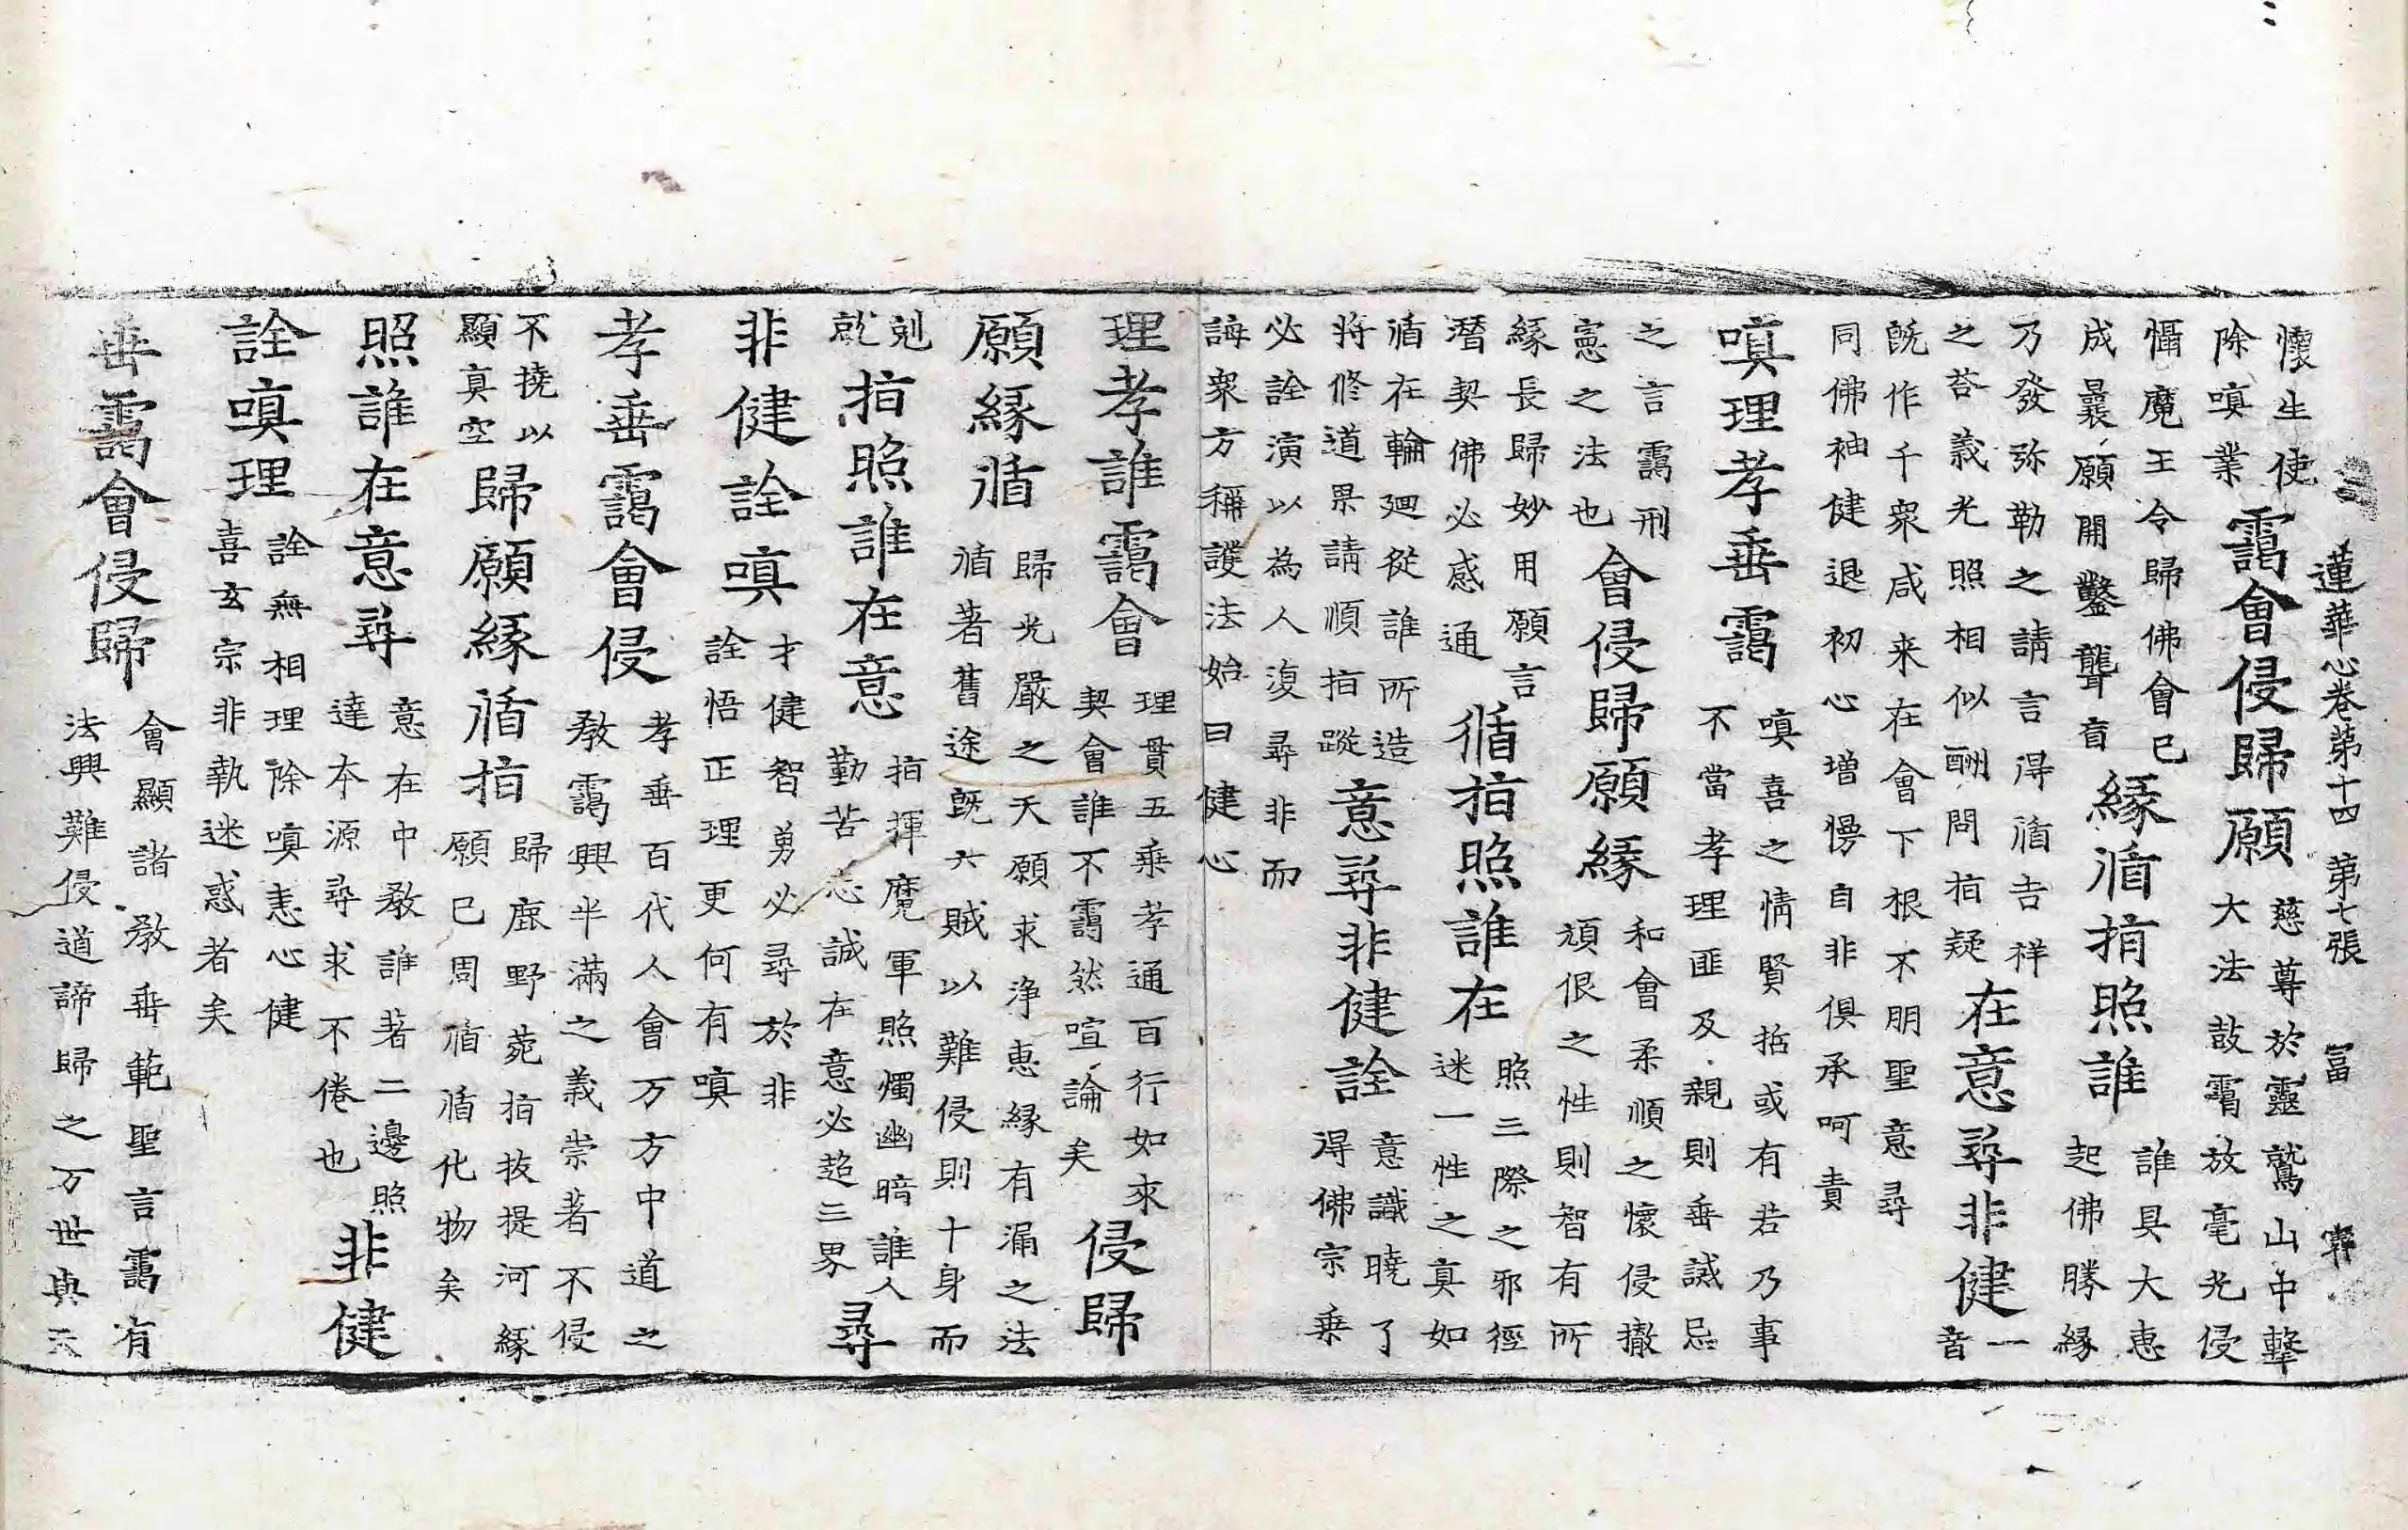 蓮華心卷第十四 第七張 冨
懷生使
除嗔業
靄會侵歸願
慈尊於靈鷲山中擊
大法鼓霑放毫光侵
懾魔王令歸佛會已
成曩願開鑿聾盲
緣循指照誰
誰具大惠
起佛勝緣
乃發弥勒之請言得循吉祥
之荅義光照相似酬問指疑
在意尋非健
一
音
旣作千衆咸来在會下根不朋聖意尋
同佛袖健退初心增慢自非俱承呵責
嗔理孝垂靄
嗔喜之情賢哲或有若乃事
不當孝理匪及親則垂誡忌
之言靄刑
憲之法也
會侵歸願緣
和會柔順之懷侵撤
頑佷之性則智有所
緣長歸妙用願言
潛契佛必感通
循指照誰在
照三際之邪徑
迷一性之真如
循在輪廻從誰所造
將修道果請順指蹤
意尋非健詮
意識曉了
得佛宗乗
必詮演以為人復尋非而
誨衆方稱護法始曰健心
理孝誰靄會
理貫五乗孝通百行如來
契會誰不靄然喧論矣
侵歸
願緣循
歸光嚴之天願求淨惠緣有漏之法
循著舊途旣六賊以難侵則十身而
剋
就
指照誰在意
指揮魔軍照燭幽暗誰人
勤苦志誠在意必超三界
尋
非健詮嗔
才健智勇必尋於非
詮悟正理更何有嗔
孝垂靄會侵
孝垂百代人會万方中道之
教靄興半滿之義崇著不侵
不撓以
顯真空
歸願緣循指
歸鹿野菀指抜提河緣
願已周循循化物矣
照誰在意尋
意在中教誰著二邊照
達本源尋求不倦也
非健
詮嗔理
詮無相理除嗔恚心健
喜玄宗非執迷惑者矣
垂靄會侵歸
會顯諸教垂範聖言靄有
法興難侵道諦歸之万世與天